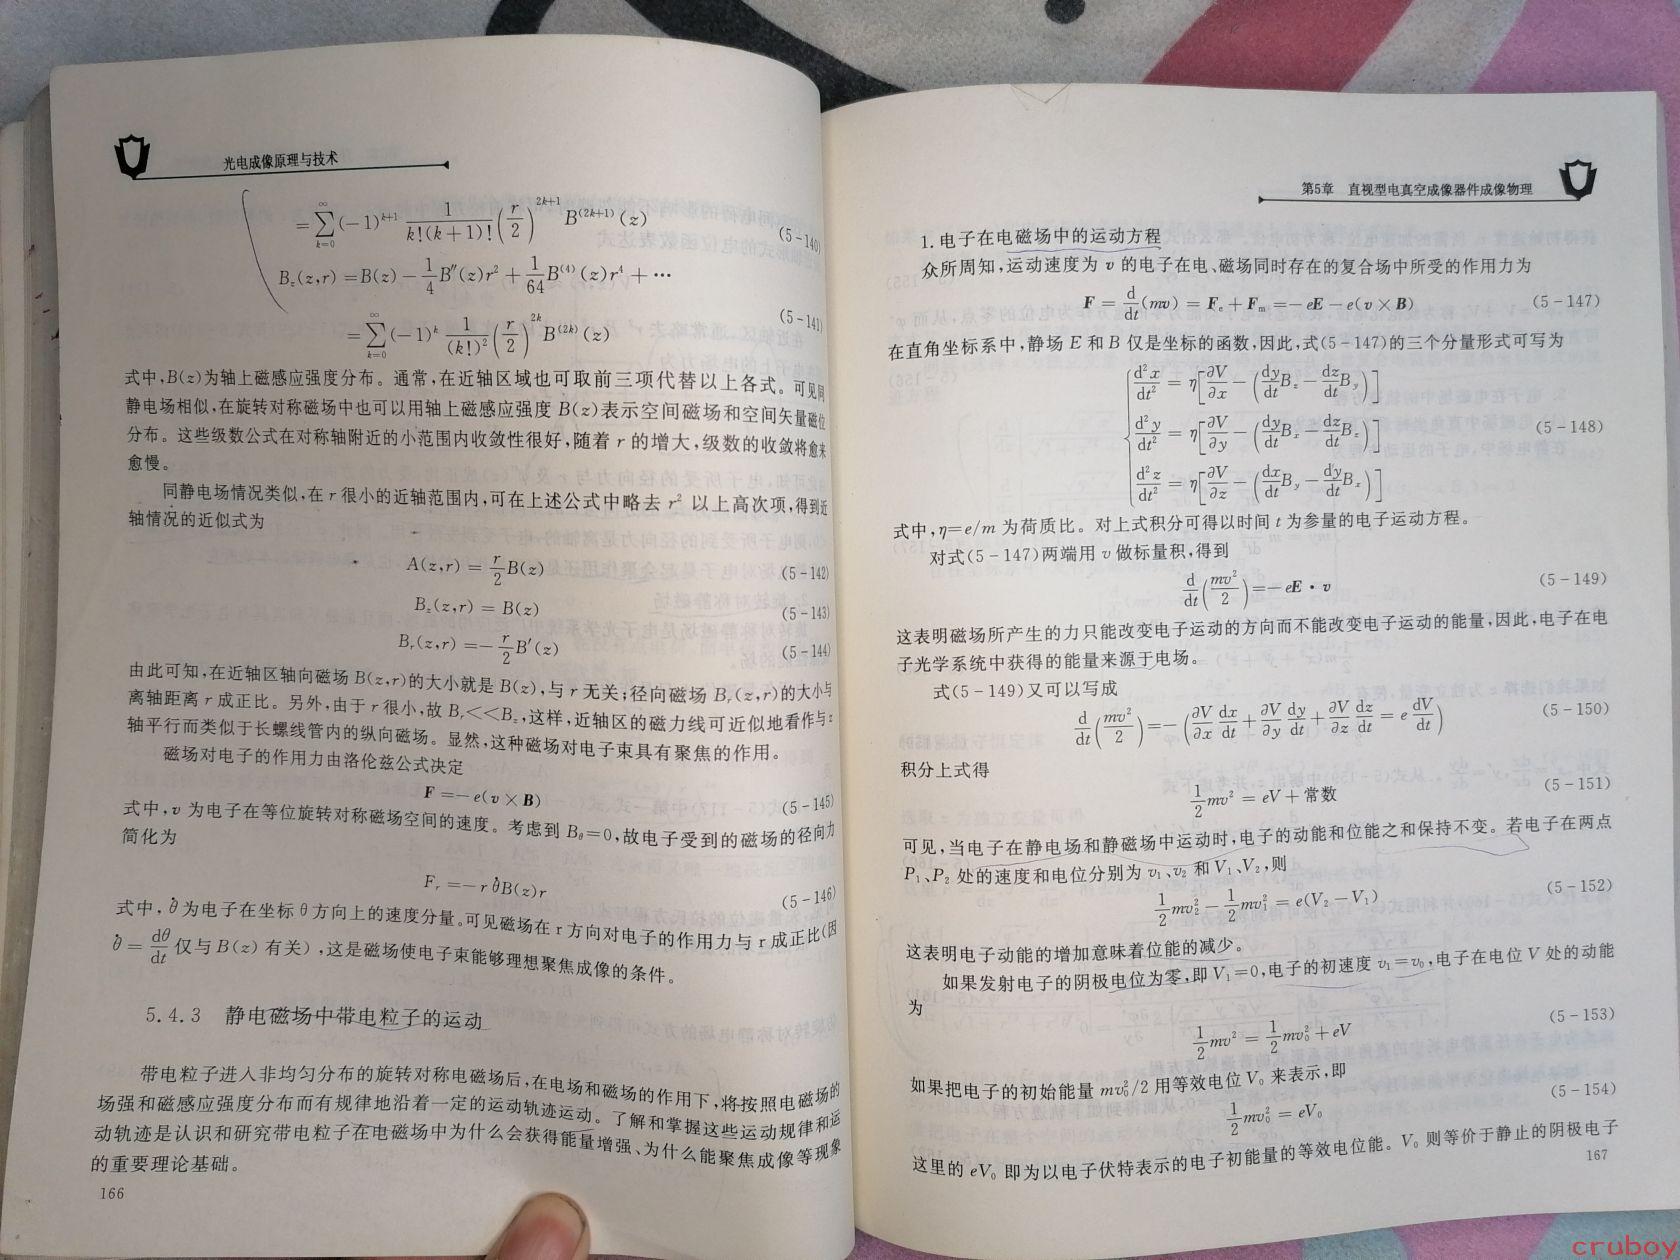 光电成像原理与技术
= \sum_{k=0}^{∞} (-1)^{k+1} \frac{1}{k!(k+1)!} (\frac{r}{2})^{2k+1} B^{(2k+1)}(z) (5-140)
B_z(z,r) = B(z) - \frac{1}{4}B''(z)r^2 + \frac{1}{64}B^{(4)}(z)r^4 + ⋯
= \sum_{k=0}^{∞} (-1)^k \frac{1}{(k!)^2} (\frac{r}{2})^{2k} B^{(2k)}(z) (5-141)
式中,B(z)为轴上磁感应强度分布。通常,在近轴区域也可取前三项代替以上各式。可见同
静电场相似,在旋转对称磁场中也可以用轴上磁感应强度 B(z)表示空间磁场和空间矢量磁位
分布。这些级数公式在对称轴附近的小范围内收敛性很好,随着 r 的增大,级数的收敛将愈来
愈慢。
同静电场情况类似,在 r 很小的近轴范围内,可在上述公式中略去 r² 以上高次项,得到近
轴情况的近似式为
A(z,r) = \frac{r}{2}B(z) (5-142)
B_z(z,r) = B(z) (5-143)
B_r(z,r) = -\frac{r}{2}B'(z) (5-144)
由此可知,在近轴区轴向磁场 B(z,r)的大小就是 B(z),与 r 无关;径向磁场 B_r(z,r)的大小与
离轴距离 r 成正比。另外,由于 r 很小,故 B_r<<B_z,这样,近轴区的磁力线可近似地看作与 z
轴平行而类似于长螺线管内的纵向磁场。显然,这种磁场对电子束具有聚焦的作用。
磁场对电子的作用力由洛伦兹公式决定
F = -e(v × B) (5-145)
式中,v 为电子在等位旋转对称磁场空间的速度。考虑到 B_θ=0,故电子受到的磁场的径向力
简化为
F_r = -r\dot{θ}B(z)r (5-146)
式中,\dot{θ}为电子在坐标 θ 方向上的速度分量。可见磁场在 r 方向对电子的作用力与 r 成正比(因
\dot{θ} = \frac{dθ}{dt} 仅与 B(z) 有关),这是磁场使电子束能够理想聚焦成像的条件。
5.4.3 静电磁场中带电粒子的运动
带电粒子进入非均匀分布的旋转对称电磁场后,在电场和磁场的作用下,将按照电磁场的
场强和磁感应强度分布而有规律地沿着一定的运动轨迹运动。了解和掌握这些运动规律和运
动轨迹是认识和研究带电粒子在电磁场中为什么会获得能量增强、为什么能聚焦成像等现象
的重要理论基础。
166
第5章 直视型电真空成像器件成像物理
1. 电子在电磁场中的运动方程
众所周知,运动速度为 v 的电子在电、磁场同时存在的复合场中所受的作用力为
F = \frac{d}{dt}(mv) = F_e + F_m = -eE - e(v × B) (5-147)
在直角坐标系中,静场 E 和 B 仅是坐标的函数,因此,式(5-147)的三个分量形式可写为
\frac{d²x}{dt²} = η[\frac{∂V}{∂x} - (\frac{dy}{dt}B_z - \frac{dz}{dt}B_y)]
\frac{d²y}{dt²} = η[\frac{∂V}{∂y} - (\frac{dz}{dt}B_x - \frac{dx}{dt}B_z)] (5-148)
\frac{d²z}{dt²} = η[\frac{∂V}{∂z} - (\frac{dx}{dt}B_y - \frac{dy}{dt}B_x)]
式中,η=e/m 为荷质比。对上式积分可得以时间 t 为参量的电子运动方程。
对式(5-147)两端用 v 做标量积,得到
\frac{d}{dt}(\frac{mv²}{2}) = -eE·v (5-149)
这表明磁场所产生的力只能改变电子运动的方向而不能改变电子运动的能量,因此,电子在电
子光学系统中获得的能量来源于电场。
式(5-149)又可以写成
\frac{d}{dt}(\frac{mv²}{2}) = -(\frac{∂V}{∂x}\frac{dx}{dt} + \frac{∂V}{∂y}\frac{dy}{dt} + \frac{∂V}{∂z}\frac{dz}{dt} = e\frac{dV}{dt}) (5-150)
积分上式得
\frac{1}{2}mv² = eV + 常数 (5-151)
可见,当电子在静电场和静磁场中运动时,电子的动能和位能之和保持不变。若电子在两点
P₁、P₂ 处的速度和电位分别为 v₁、v₂ 和 V₁、V₂,则
\frac{1}{2}mv₂² - \frac{1}{2}mv₁² = e(V₂ - V₁) (5-152)
这表明电子动能的增加意味着位能的减少。
如果发射电子的阴极电位为零,即 V₁=0,电子的初速度 v₁=v₀,电子在电位 V 处的动能
为
\frac{1}{2}mv² = \frac{1}{2}mv₀² + eV (5-153)
如果把电子的初始能量 mv₀²/2 用等效电位 V₀ 来表示,即
\frac{1}{2}mv₀² = eV₀ (5-154)
这里的 eV₀ 即为以电子伏特表示的电子初能量的等效电位能。V₀ 则等价于静止的阴极电子
167
cruboy